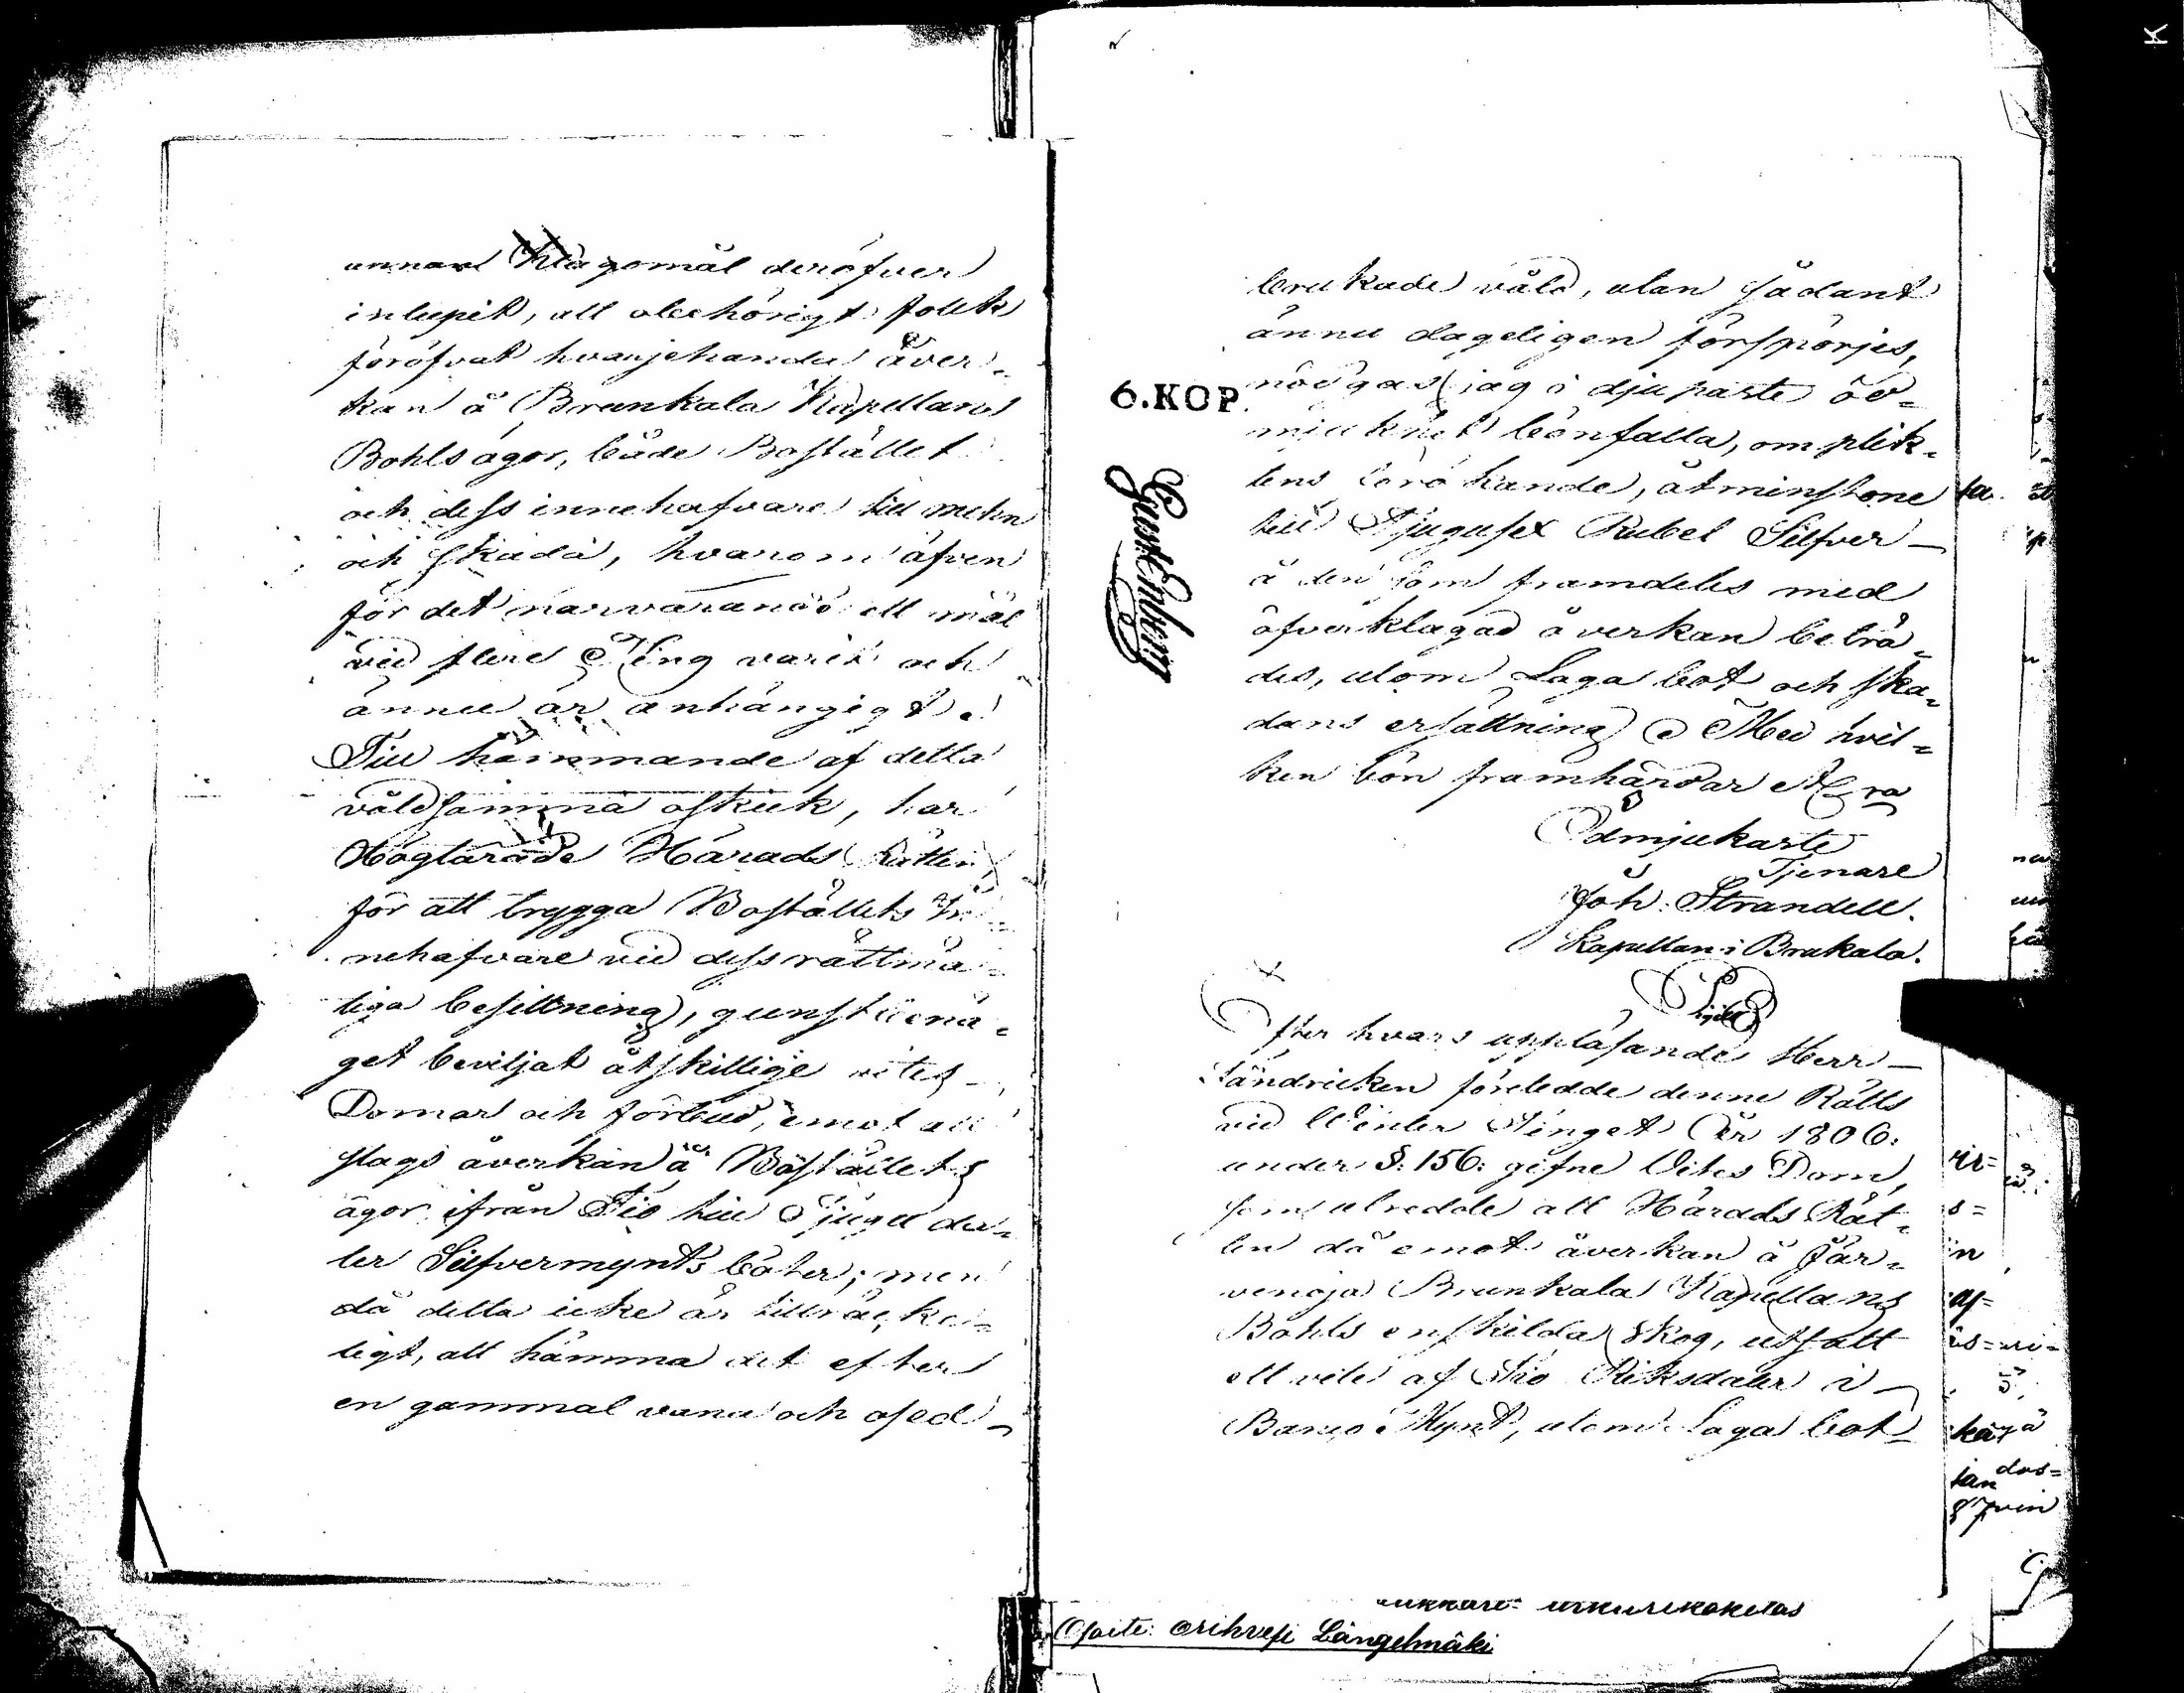 annan Klagomål deröfver
inlupit, att obehörigt folk
föröfvat hvarjehanda åver-
kan å Brunkala Kapellans
Bohls ägor, både Bostället
och dess innehafvare till mehn
och skada, hvarom äfven
för det närvarande ett mål
vid flere Ting varit och
ännu är anhängigt.
Till hämmande af detta
våldsamma ofskick, har
Höglärade Härads Rätten
för att trygga Boställets in-
nehafvare vid dess rättmä-
tiga besittning, gunstbenä-
get beviljat åtskillige vites-
Domar och förbud, emot all
slags åverkan å Boställets
ägor ifrån Tio till Tjugu da-
ler Silfvermynts böter; men
då detta icke är tillräcke-
ligt, att hämma det efter
en gammal vana och osed
brukade våld, utan sådant
ännu dageligen försporjes,
nödgas jag i djupaste öd-
mjukhet bönfalla, om plik-
tens förökande, åtminstone
till Tjugusex Rubel Silfver
å den som framdeles med
öfverklagad åverkan beträ-
des, utom Laga bot och ska-
dans ersättning. Med hvil-
ken bön framhärdar
Ödmjukaste
Tjenare
Joh. Strandell.
Kapellan i Brukala.
6.KOP
Efter hvars uppläsande Herr
Ländricken företedde denne Rätts
vid Vinter Tinget år 1806.
under §. 156. gifne Vites Dom,
som utredde att Härads Rät-
ten då emot åverkan å Jär-
venoja Brunkala Kapellans
Bohls enskilda skog, utsatt
ett vite af Tio Riksdaler i
Banco Mynt, utom Laga bot
Osoite: Orihvesi Längelmäki